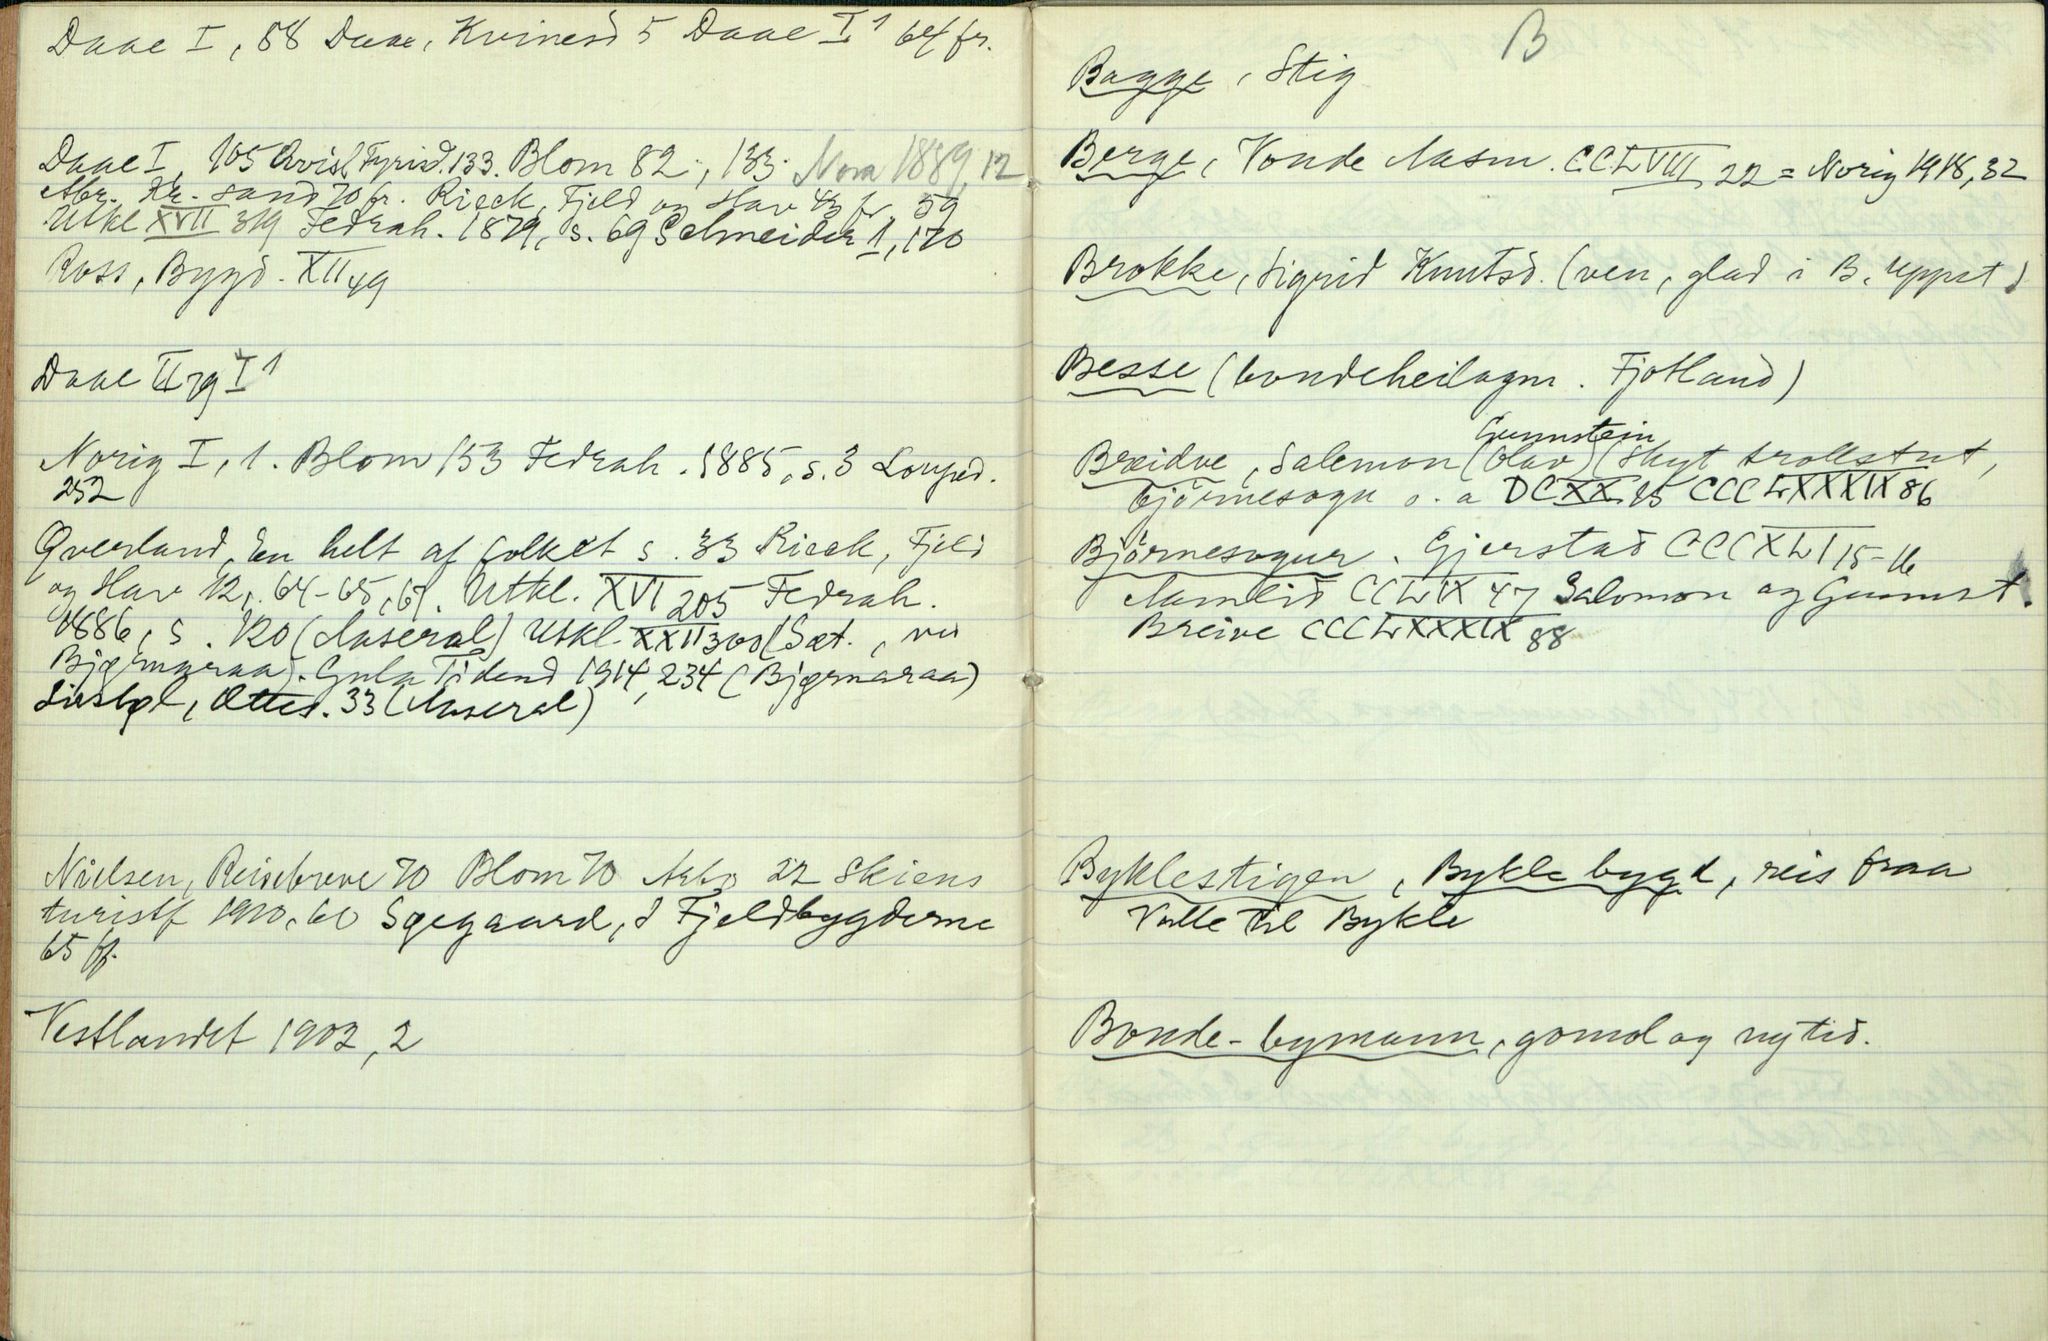 Daae I, 88 Daae, Kvinesd 5 Daae I¹ 64 fr.
Daae I, 105 Qvisl. Fyrisd. 133. Blom 82, 133. Nora 1889, 12
Abr. Kr.sand 70 fr. Rieck, Fjeld og Hav 43 fr, 59
Utkl XVII 319 Fedrah. 1879, s. 69 Schneider 1, 170
Ross, Bygd. XII 49
Daae II 79 I¹
Norig I, 1. Blom 153 Fedrah. 1885, s. 3
252
Qverland, En helt af folket s. 33 Rieck, Fjeld
og Hav 12, 64-65, 61. Utkl. XVI 205 Fedrah.
1886, s. 120 (Aaseral) Utkl. XXII 300 (Sæt., ved
Bjørnaraa). Gula Tidend 1914, 234 (Bjørnaraa)
Liestøl, Ættes. 33 (Aaseral)
Nielsen, Reisebreve 70 Blom 70 Arbo 22 Skiens
turistf 1910, 60 Søegaard, I Fjeldbygderne
65 ff.
Vestlandet 1902, 2
B
Bagge, Stig
Berge, Vonde Aasm. CCLVIII 22 = Norig 1918, 32
Brokke, Sigrid Knutsd. (ven, glad i B. Uppst)
Besse (bondeheilagm. Fjotland)
Gunnstein
Breidve, Salemon (Olav) (Skyt trollstut,
bjørnesogu o. a DCXX 15 CCCLXXXIX 86
Bjørnesogur. Gjerstad CCCXLI 15-16
Aamlid CCLIX 47 Salomon og Gunnst.
Breive CCCLXXXIX 88
Byklestigen, Bykle bygd, reis fraa
Valle til Bykle
Bonde-bymann, gomol og ny tid.